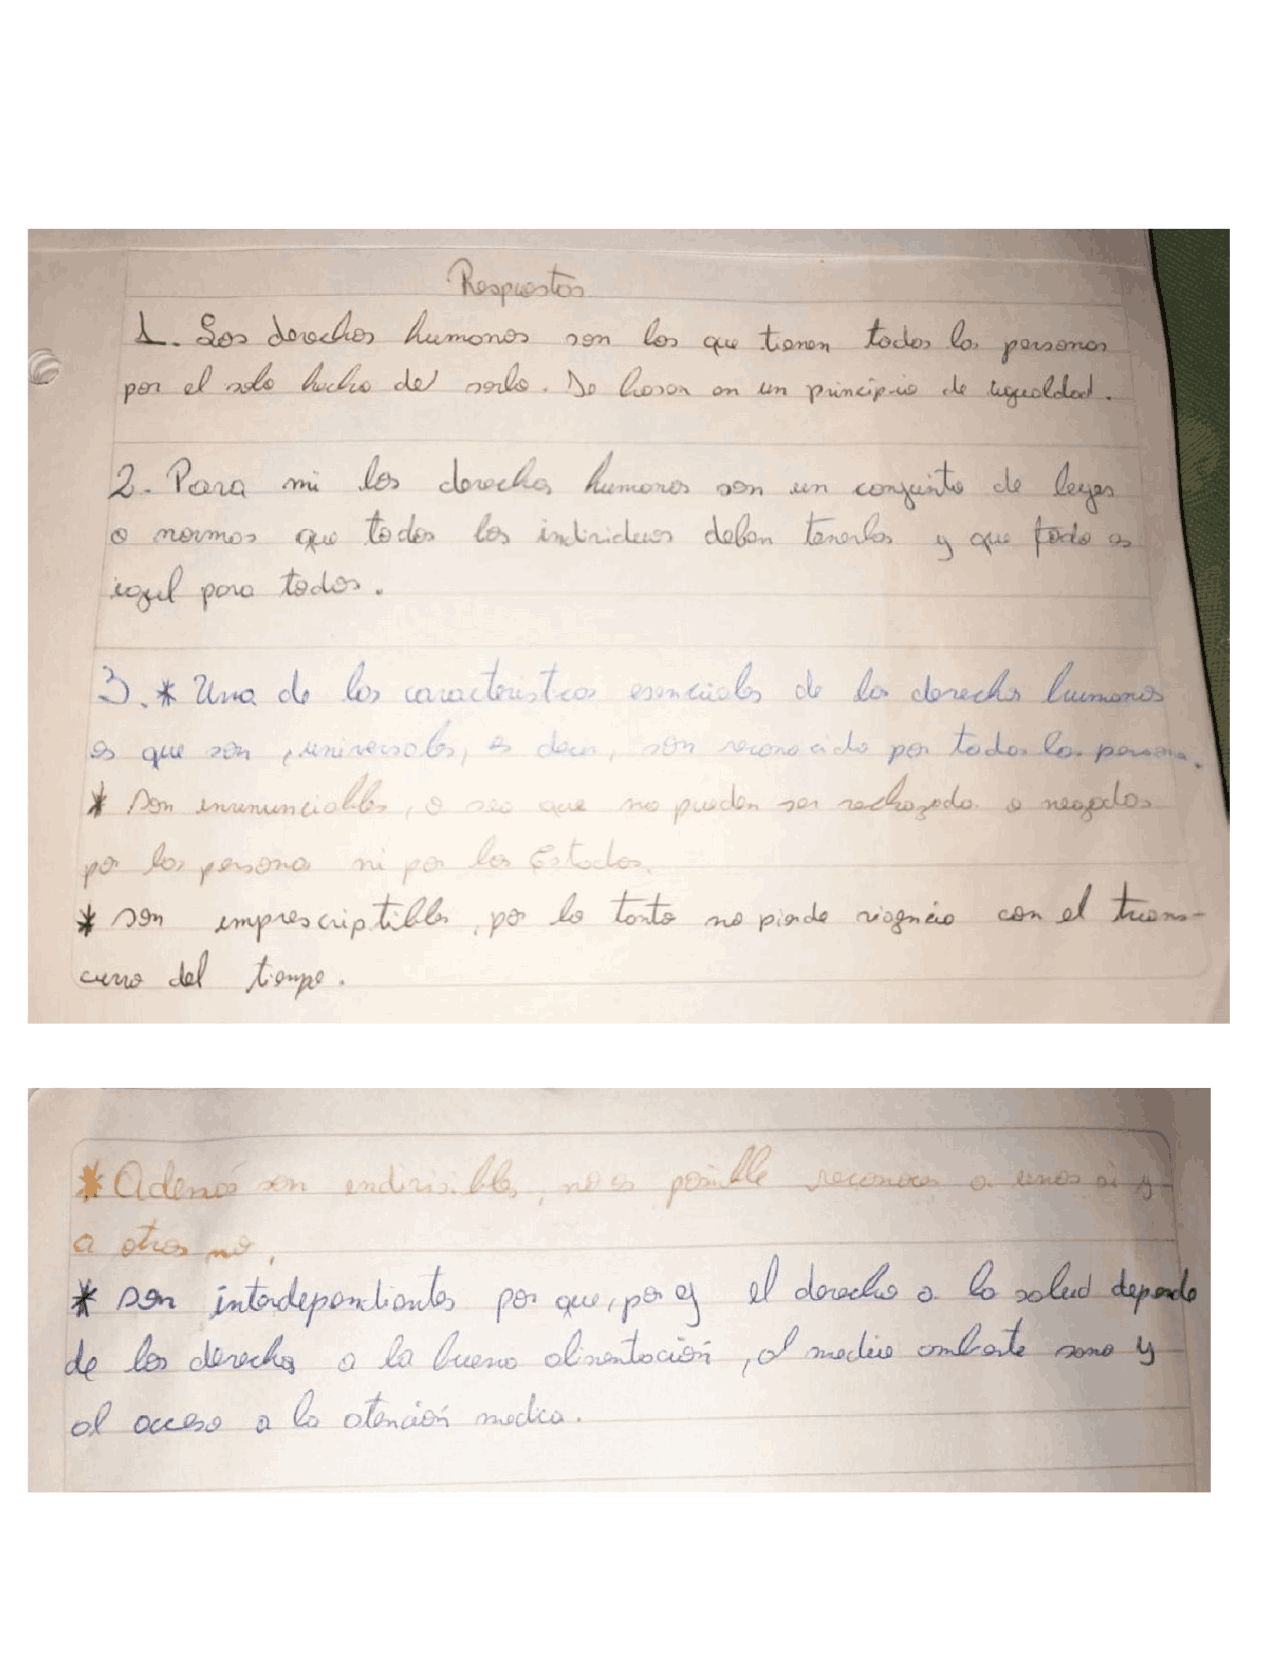 Respuestas
1. Los derechos humanos son los que tienen todas las personas
por el solo hecho de serlo. Se basan en un principio de igualdad.
2. Para mi los derechos humanos son un conjunto de leyes
o normas que todos los individuos deben tenerlos y que todo es
igual para todos.
3. * Una de las caracteristicas esenciales de los derechos humanos
es que son universales, es decir, son reconocido por todas las persona.
* Son inrenunciables, o sea que no pueden ser rechazado o negados
por las persona ni por los Estados.
* son imprescriptibles, por lo tanto no pierde vigencia con el trans-
curso del tiempo.
* Ademas son indivisibles, no es posible reconocer a unos si y
a otros no,
* son interdependientes por que, por ej el derecho a la salud depende
de los derechos a la buena alimentación, al medio ambiente sano y
al acceso a la atención medica.